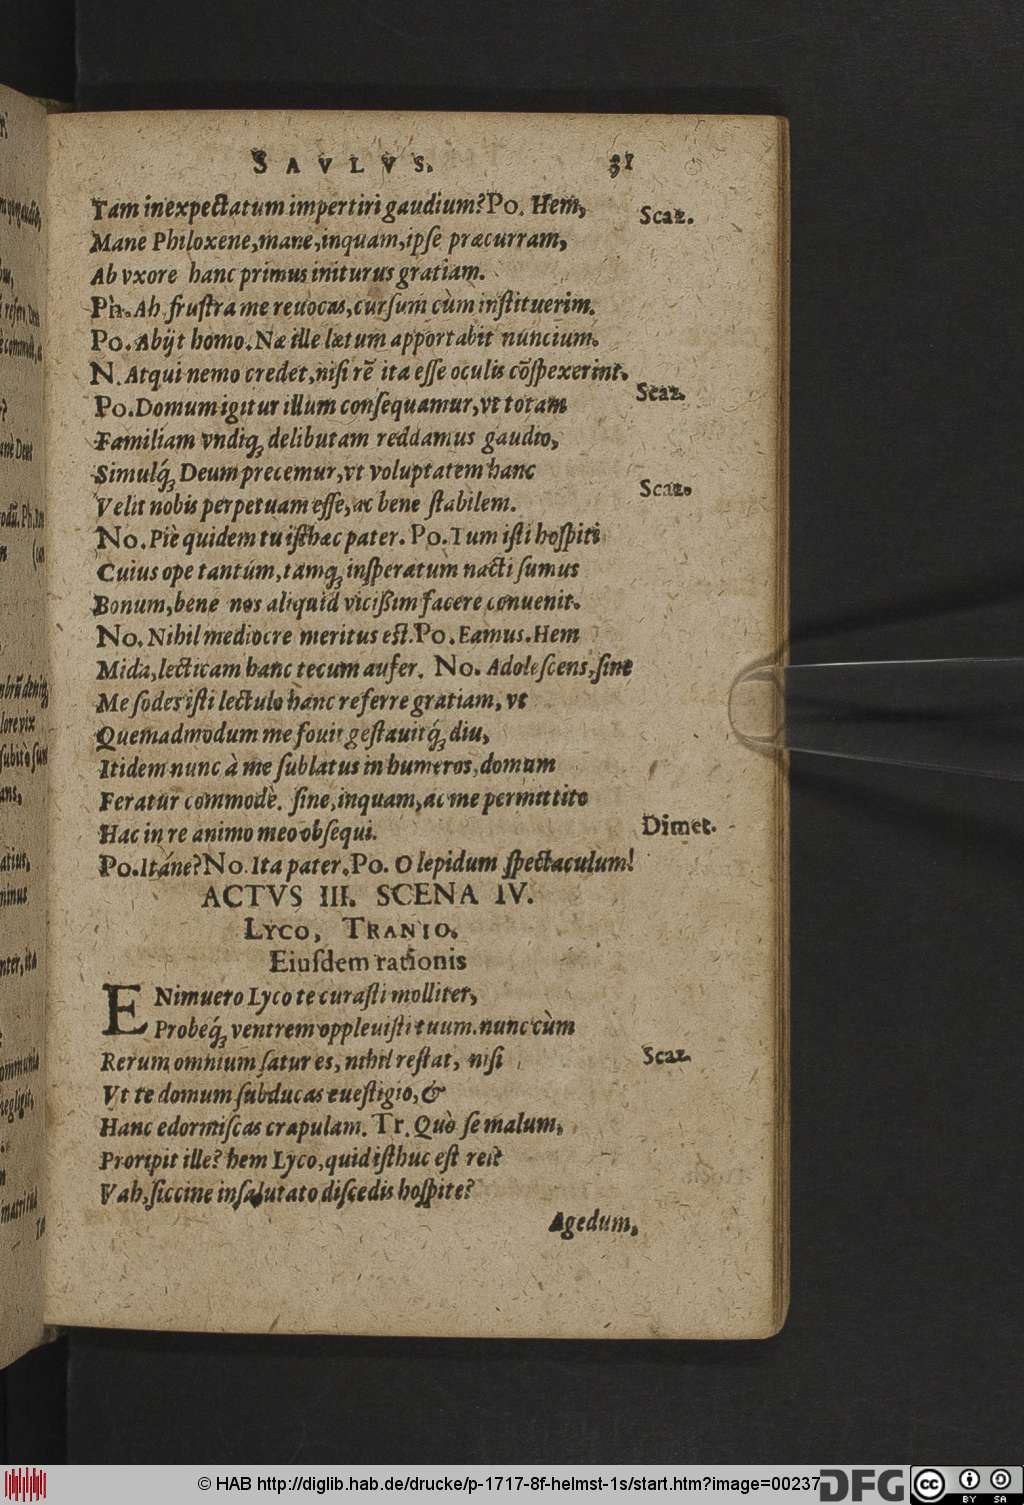 SAVLVS. 31
Tam inexpectatum impertiri gaudium? Po. Hem, Scaz.
Mane Philoxene, mane, inquam, ipse præcurram,
Ab vxore hanc primus initurus gratiam.
Ph. Ah frustra me reuocas, cursum cùm instituerim.
Po. Abijt homo. Næ ille lætum apportabit nuncium.
N. Atqui nemo credet, nisi rē ita esse oculis cōspexerint.
Po. Domum igitur illum consequamur, vt totam Scaz.
Familiam vndiq; delibutam reddamus gaudio,
Simulq́; Deum precemur, vt voluptatem hanc
Velit nobis perpetuam esse, ac bene stabilem. Scaz.
No. Piè quidem tu isthæc pater. Po. Tum isti hospiti
Cuius ope tantum, tamq; insperatum nacti sumus
Bonum, bene nos aliquid vicißim facere conuenit.
No. Nihil mediocre meritus est. Po. Eamus. Hem
Mida, lecticam hanc tecum aufer. No. Adolescens, sine
Me sodes isti lectulo hanc referre gratiam, vt
Quemadmodum me fouit gestauitq́; diu,
Itidem nunc à me sublatus in humeros, domum
Feratur commodè. sine, inquam, ac me permittito
Hac in re animo meo obsequi. Dimet.
Po. Itáne? No. Ita pater. Po. O lepidum spectaculum!
ACTVS III. SCENA IV.
LYCO, TRANIO.
Eiusdem rationis
ENimuero Lyco te curasti molliter,
Probeq́; ventrem oppleuisti tuum. nunc cùm
Rerum omnium satur es, nihil restat, nisi Scaz.
Vt te domum subducas euestigio, &
Hanc edormiscas crapulam. Tr. Quò se malum,
Proripit ille? hem Lyco, quid isthuc est rei?
Vah, siccine insalutato discedis hospite?
Agedum,
© HAB http://diglib.hab.de/drucke/p-1717-8f-helmst-1s/start.htm?image=00237
DFG
cc BY SA